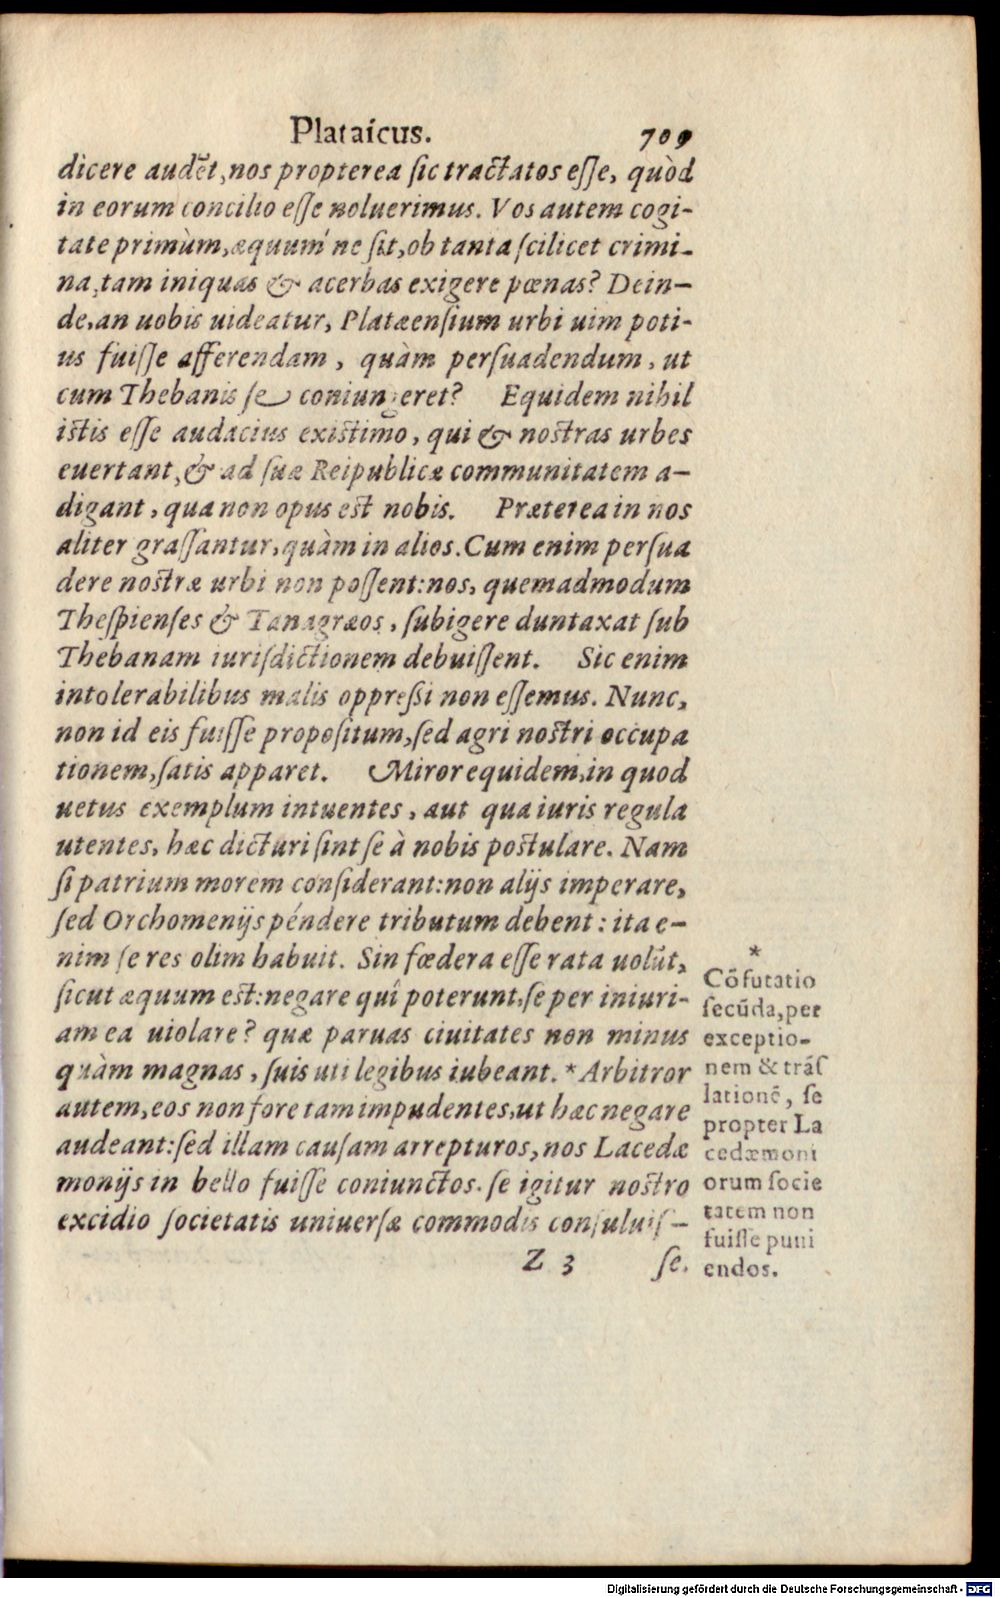 Plataicus. 709
dicere audēt, nos propterea ſic tractatos eſſe, quòd
in eorum concilio eſſe noluerimus. Vos autem cogi-
tate primùm, æquum'ne ſit, ob tanta ſcilicet crimi-
na, tam iniquas & acerbas exigere pœnas? Dein-
de, an uobis uideatur, Platæenſium urbi uim poti-
us fuiſſe afferendam, quàm perſuadendum, ut
cum Thebanis ſe coniungeret? Equidem nihil
iſtis eſſe audacius exiſtimo, qui & noſtras urbes
euertant, & ad ſuæ Reipublicæ communitatem a-
digant, qua non opus eſt nobis. Præterea in nos
aliter graſſantur, quàm in alios. Cum enim perſua
dere noſtræ urbi non poſſent: nos, quemadmodum
Theſpienſes & Tanagræos, ſubigere duntaxat ſub
Thebanam iuriſdictionem debuiſſent. Sic enim
intolerabilibus malis oppreſſi non eſſemus. Nunc,
non id eis fuiſſe propoſitum, ſed agri noſtri occupa
tionem, ſatis apparet. Miror equidem, in quod
uetus exemplum intuentes, aut qua iuris regula
utentes, hæc dicturi ſint ſe à nobis poſtulare. Nam
ſi patrium morem conſiderant: non alijs imperare,
ſed Orchomenijs péndere tributum debent: ita e-
nim ſe res olim habuit. Sin fœdera eſſe rata uolūt,
ſicut æquum eſt: negare quî poterunt, ſe per iniuri-
am ea uiolare? quæ paruas ciuitates non minus
quàm magnas, ſuis uti legibus iubeant. * Arbitror
autem, eos non fore tam impudentes, ut hæc negare
audeant: ſed illam cauſam arrepturos, nos Lacedæ
monijs in bello fuiſſe coniunctos. ſe igitur noſtro
excidio ſocietatis uniuerſæ commodis conſuluiſ-
Z 3 ſe.
*
Cōfutatio
ſecūda, per
exceptio-
nem & trāſ
lationē, ſe
propter La
cedæmoni
orum ſocie
tatem non
fuiſſe puni
endos.
Digitalisierung gefördert durch die Deutsche Forschungsgemeinschaft - DFG